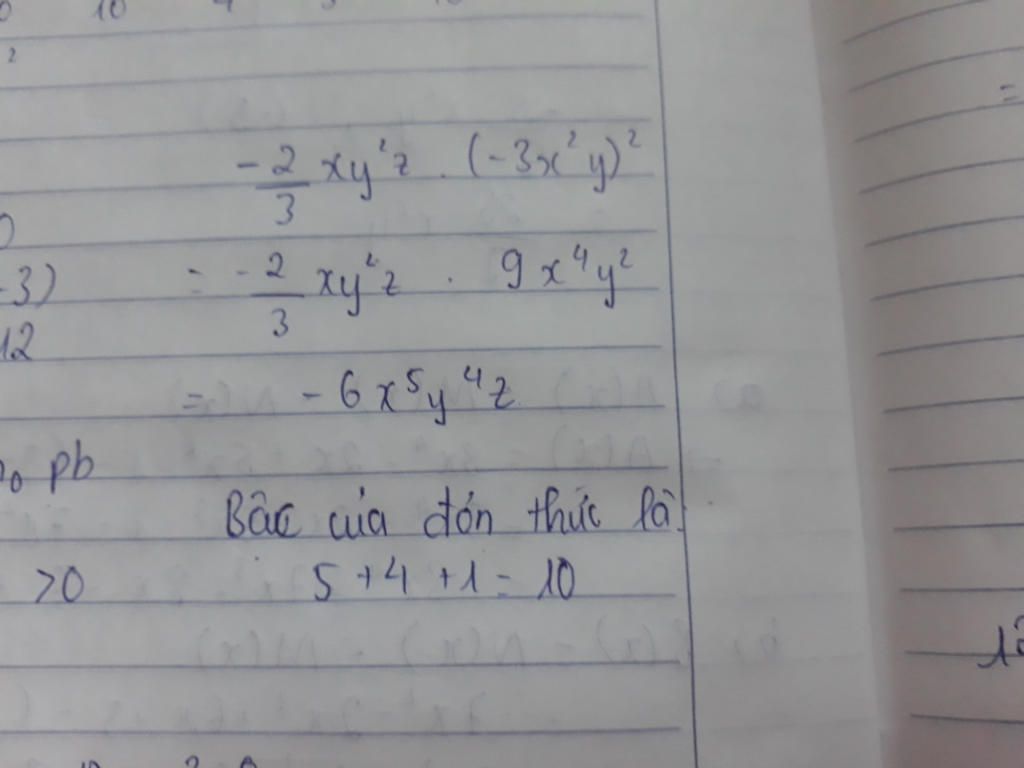 10 4
2
-2/3 xy²z . (-3x²y)²
-3)
= -2/3 xy²z . 9x⁴y²
12
= -6x⁵y⁴z
pb
Bâc của đón thức là:
>0 5+4+1=10